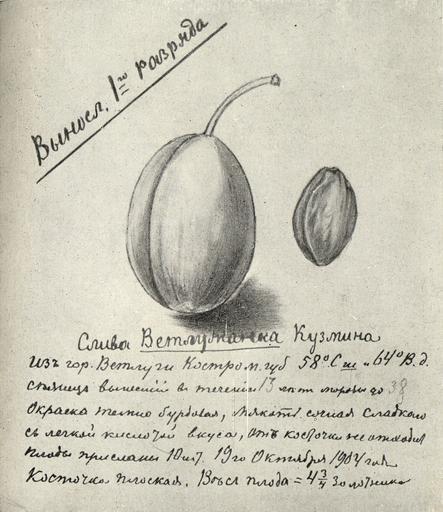 Вынос. 1го разряда
Слива Ветлужанка Кузмина
Изъ гор. Ветлуги Костром. губ 58° С ш и 64° В. д.
вы въ течении 13 лет морозы до 38
Окраска темно бурдовая, мякоть сочная сладкого
съ легкой кислотой вкуса, отъ косточки не отходит
Плоды присланы 10 шт. 19го Октября 1904 года
Косточка плоская. Весъ плода = 4 3/4 золотника